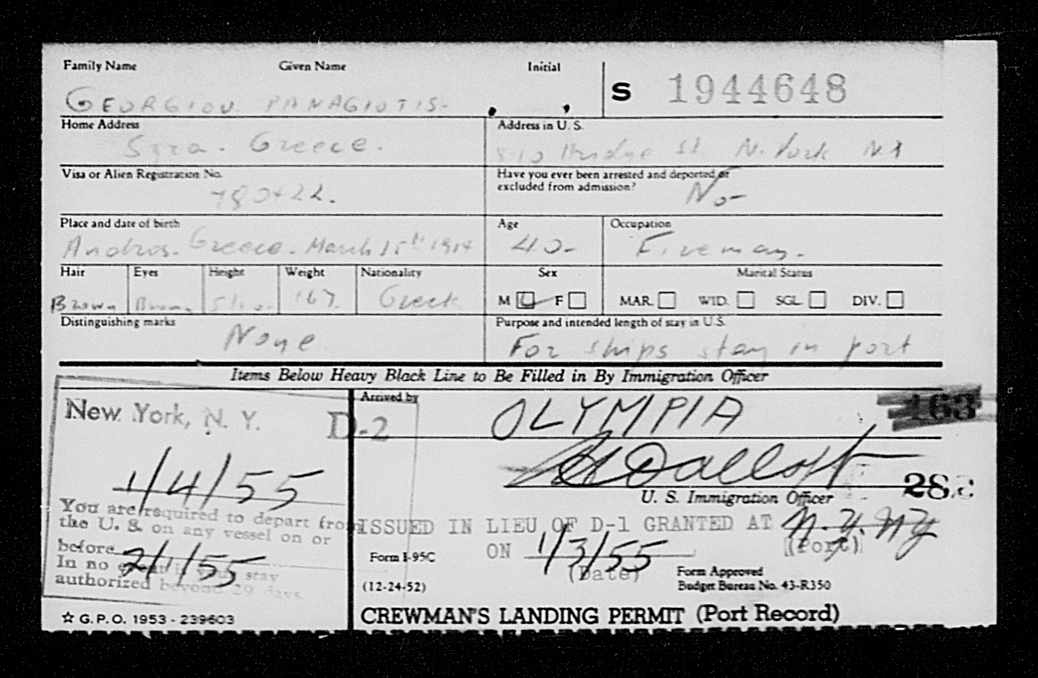 Family Name Given Name Initial
GEORGIOU PANAGIOTIS- . , S 1944648
Home Address Address in U. S.
Syra. Greece. Bridge St. N. York N.Y
Visa or Alien Registration No. Have you ever been arrested and deported or
excluded from admission?
780422. No-
Place and date of birth Age Occupation
Andros. Greece. March 15th 1914 40- Fireman.
Hair Eyes Height Weight Nationality Sex Marital Status
Brown Brown 167. Greek M F MAR. WID. SGL. DIV.
Distinguishing marks Purpose and intended length of stay in U.S.
None For ships stay in port
Items Below Heavy Black Line to Be Filled in By Immigration Officer
Arrived by
New York, N. Y. D-2 OLYMPIA 163
1/4/55
U. S. Immigration Officer 28
You are required to depart from
the U. S. on any vessel on or
before 2/1/55
In no event is your stay
authorized beyond 29 days.
ISSUED IN LIEU OF D-1 GRANTED AT N.Y. NY
(Port)
Form I-95C ON 1/3/55
(Date)
(12-24-52) Form Approved
Budget Bureau No. 43-R350
☆ G.P.O. 1953 - 239603 CREWMAN'S LANDING PERMIT (Port Record)